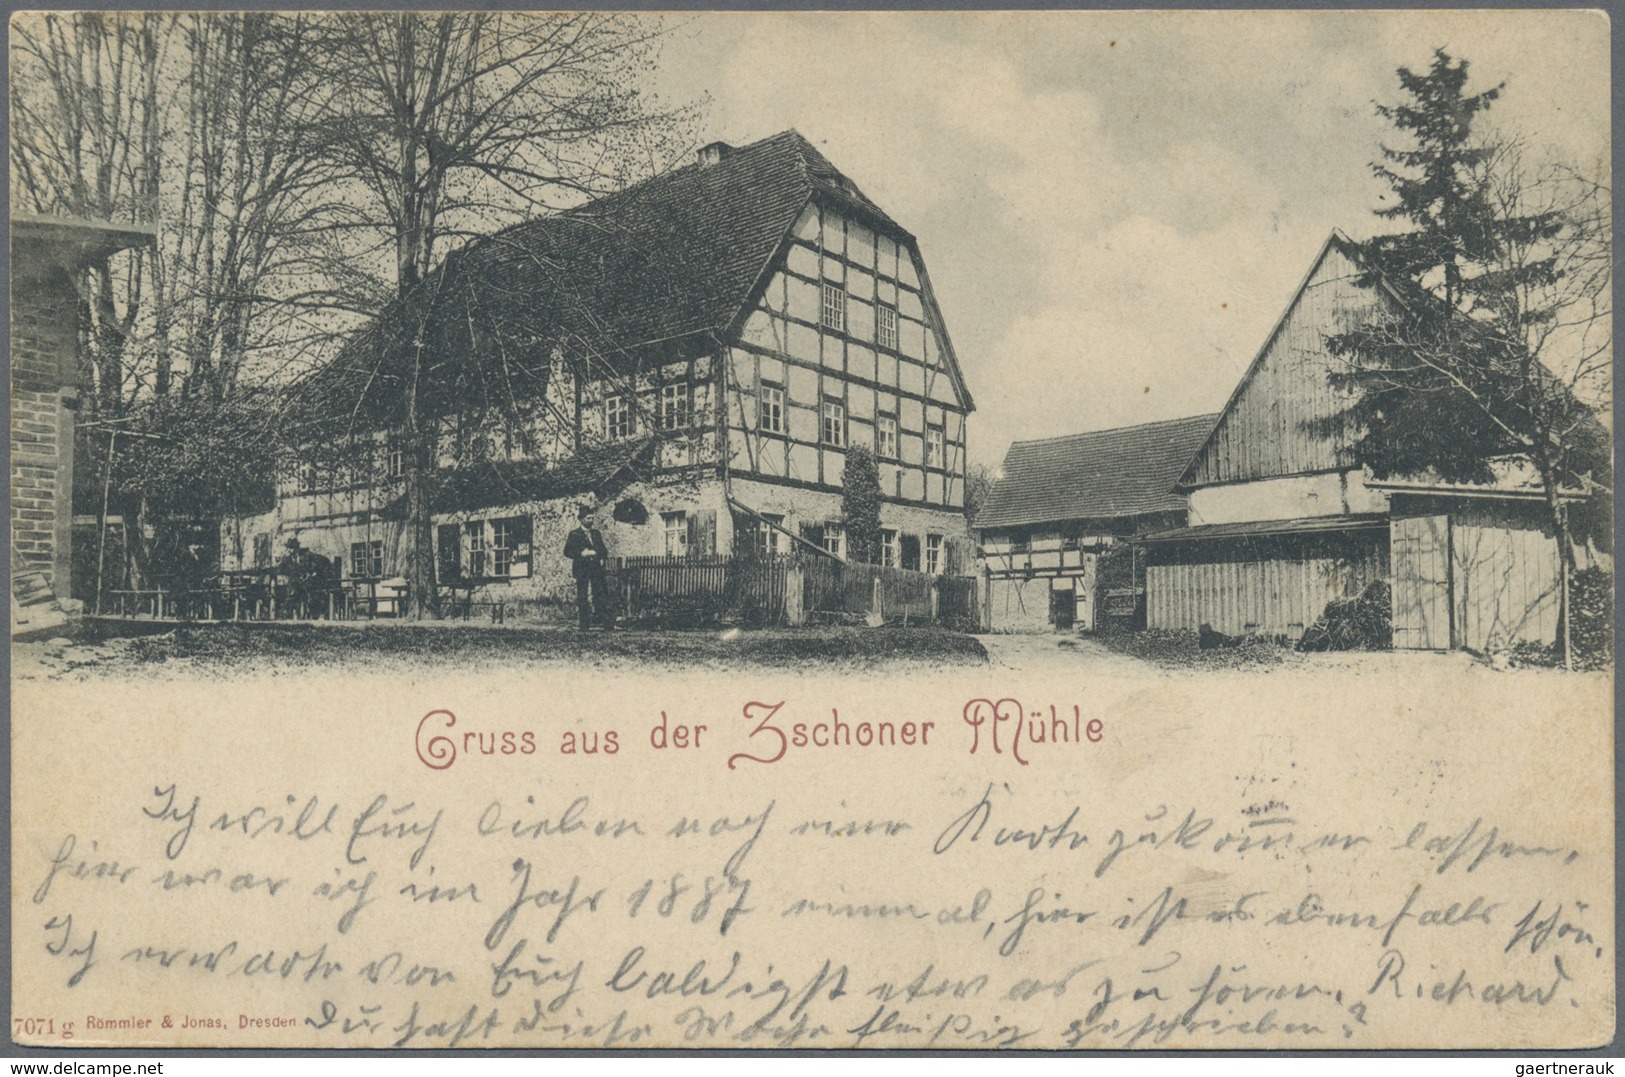 Gruss aus der Zschoner Mühle
Ich will Euch lieben noch eine Karte zukom̅en lassen,
hier war ich im Jahr 1887 einmal, hier ist es ebenfalls schön.
Ich erwarte von Euch baldigst etwas zu hören. Richard.
7071 g Römmler & Jonas, Dresden
Du hast diese Woche fleißig geschrieben?
delcampe.net
gaertnerauk